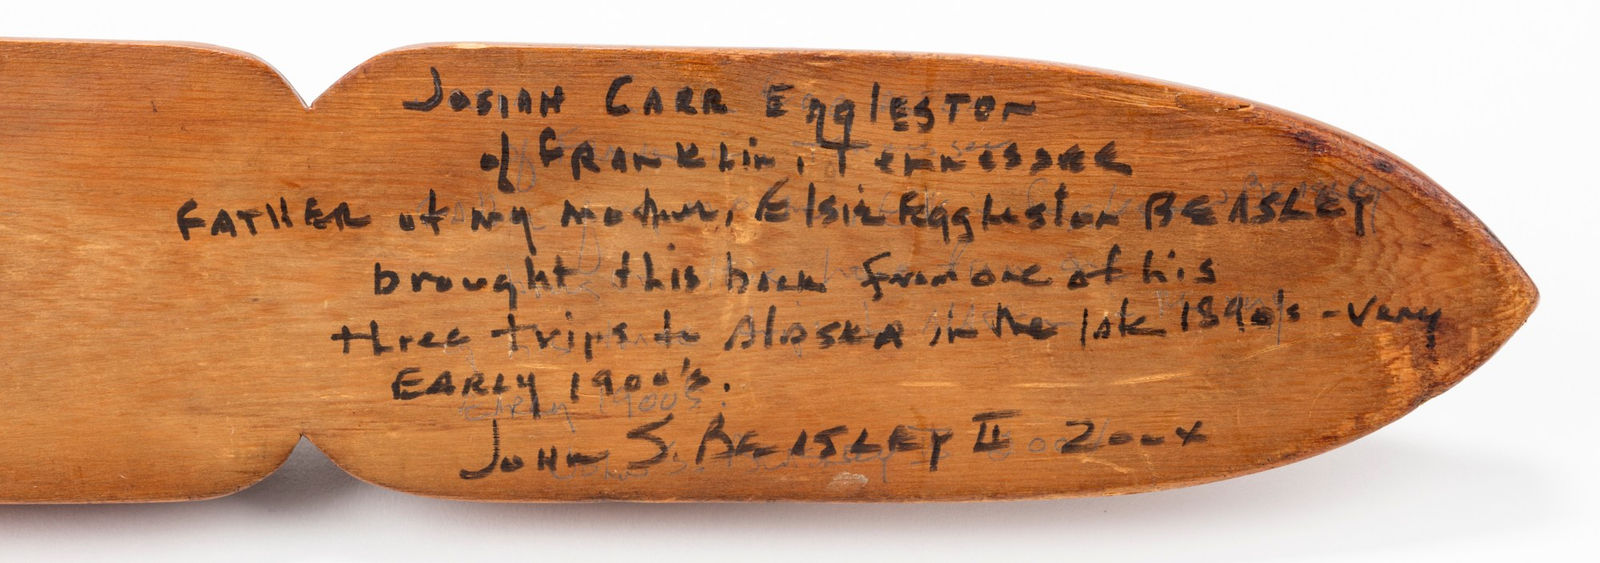 Josiah Carr Eggleston
of Franklin, Tennessee
Father of my mother, Elsie Eggleston Beasley
brought this back from one of his
three trips to Alaska in the late 1890's - very
early 1900's.
John S. Beasley II